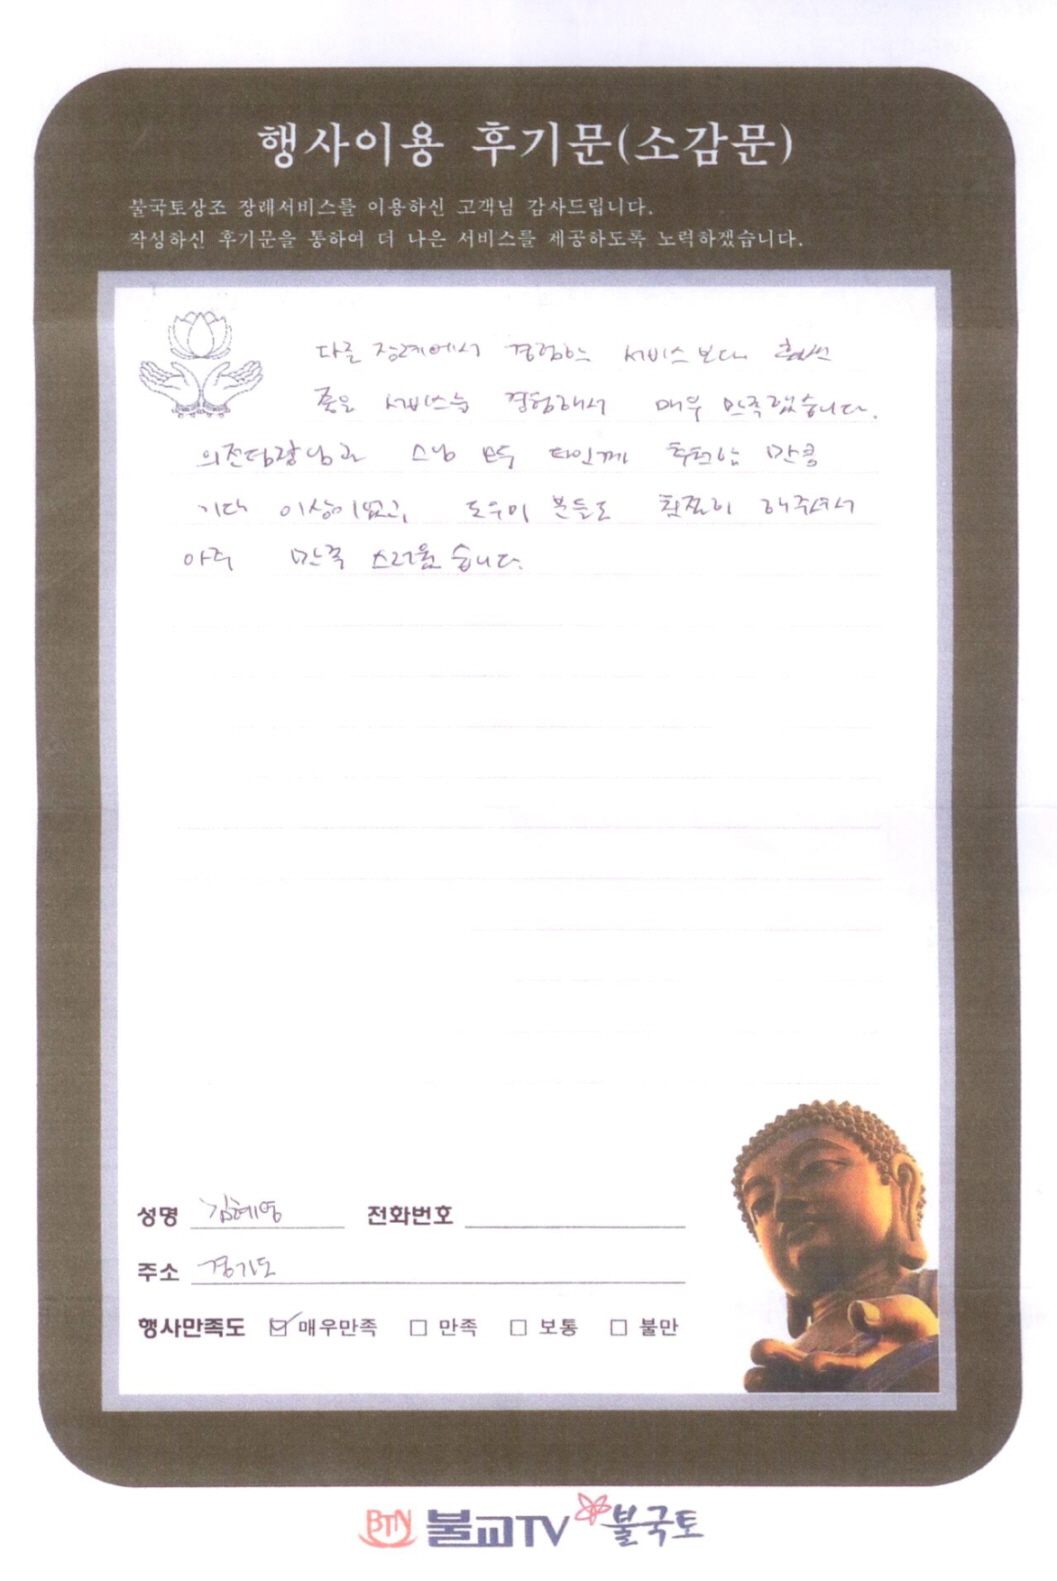 행사이용 후기문(소감문)
불국토상조 장례서비스를 이용하신 고객님 감사드립니다.
작성하신 후기문을 통하여 더 나은 서비스를 제공하도록 노력하겠습니다.
다른 장례에서 경험하는 서비스 보다 훨씬
좋은 서비스를 경험해서 매우 만족했습니다.
의전팀장님과 스님 모두 타인께 추천할 만큼
기대 이상이었고, 도우미 분들도 친절히 해주셔서
아주 만족 스러웠습니다.
성명 김혜영 전화번호
주소 경기도
행사만족도 ☑ 매우만족 □ 만족 □ 보통 □ 불만
BTN 불교TV 불국토